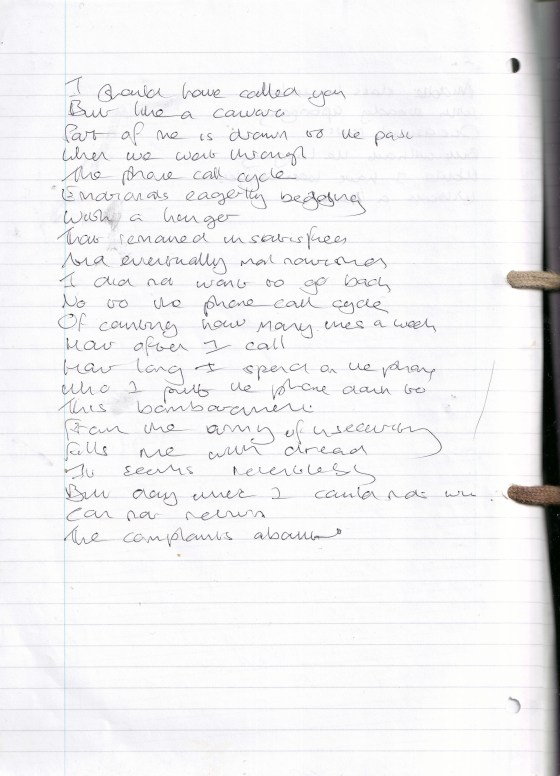 I should have called you
But like a coward
Part of me is drawn to the past
When we went through
The phone call cycle
Emotionals eagerly begging
With a hunger
That remained unsatisfied
And eventually not nourished
I did not want to go back
No to the phone call cycle
Of counting how many times a week
How often I call
How long I spend on the phone
Who I put the phone down to
This bombardment
From the army of insecurity
Fills me with dread
It seems relentless
But day when I could not
Can not return
The complaints about